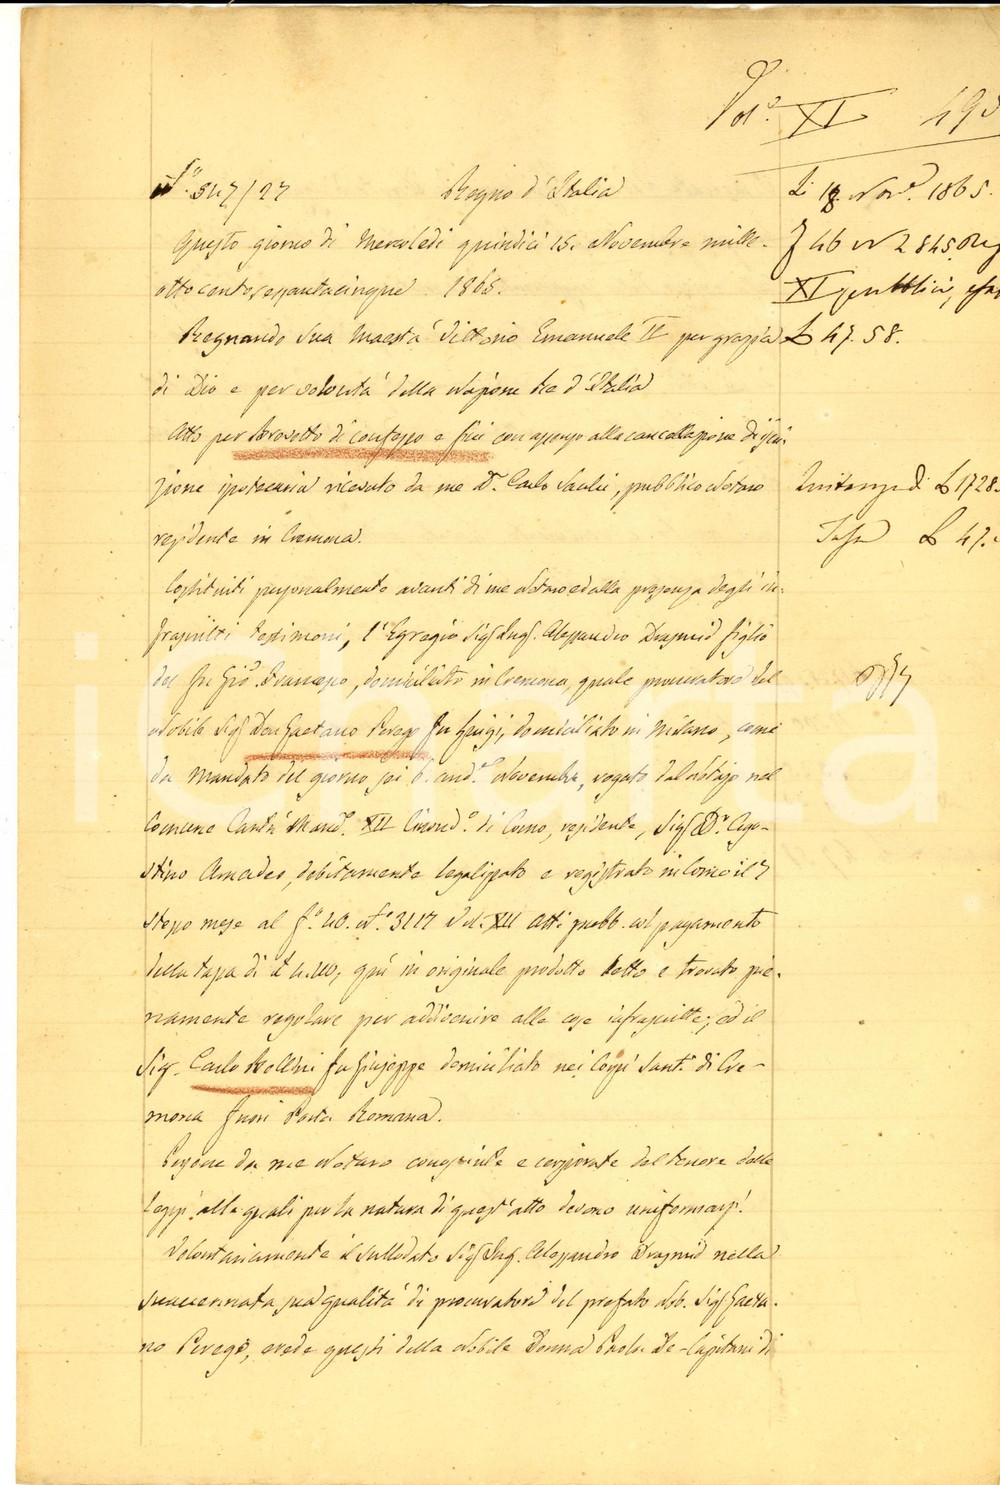 Vol.° XI 493
N.° 347/27 Regno d'Italia
Questo giorno di Mercoledì quindici 15. Novembre mille-
ottocentosessantacinque 1865.
Regnando Sua Maestà Vittorio Emanuele II per grazia
di Dio e per volontà della Nazione Re d'Italia
Atto per Prosotto di confesso e fine con assenso alla cancellazione di iscri-
zione ipotecaria ricevuto da me Dr. Carlo, pubblico Notaro
residente in Cremona.
Costituiti personalmente avanti di me Notaro ed alla presenza degli in-
frascritti testimoni, l'Egregio Sig. Ing. Alessandro figlio
del fu Gio. Francesco, domiciliato in Cremona, quale procuratore del
Nobile Sig. Don Gaetano Perego fu Luigi, domiciliato in Milano, come
da Mandato del giorno sei 6. and.e Novembre, rogato dal Notajo nel
Comune Cantù Mand.° XII Circond.° di Como, residente, Sig. Dr. Ago-
stino Amadeo, debitamente legalizzato e registrato in Como il 7
stesso mese al f.° 40. N.° 3117 Vol. XII Atti pubb. col pagamento
della tassa di £ 4.40, qui in originale prodotto letto e trovato pie-
namente regolare per addivenire alle cose infrascritte; ed il
Sig. Carlo Bellini fu Giuseppe domiciliato nei Corpi Santi di Cre-
mona fuori Porta Romana.
Persone da me Notaro conosciute e cerziorate del tenore delle
leggi alle quali per la natura di quest'atto devono uniformarsi.
Volontariamente il sullodato Sig. Ing. Alessandro nella
succennata sua qualità di procuratore del prefato Nob. Sig. Gaeta-
no Perego, erede questi della Nobile Donna Paola De-Capitani di
Li 18. Nov.e 1865.
f 46 N 2845. Reg
XI pubblici, esa
£ 47. 58.
Quitanza di £ 1728.
Tassa £ 47.
ichata